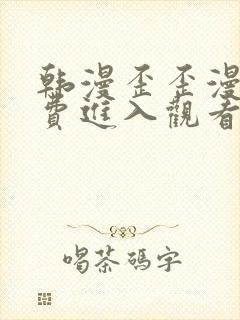 韩漫歪歪漫
費進入觀看
喝茶碼字